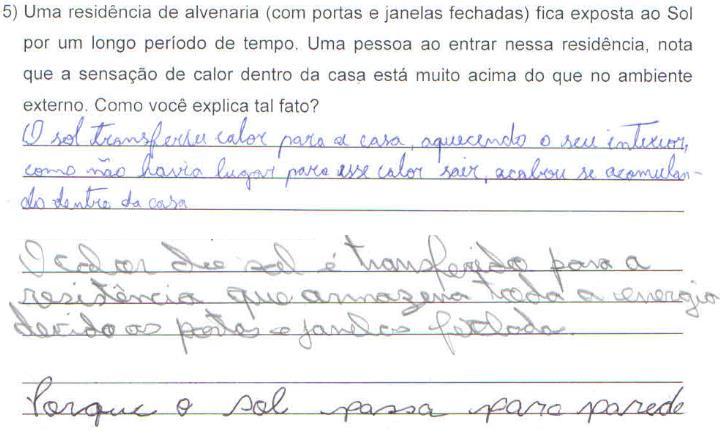 5) Uma residência de alvenaria (com portas e janelas fechadas) fica exposta ao Sol
por um longo período de tempo. Uma pessoa ao entrar nessa residência, nota
que a sensação de calor dentro da casa está muito acima do que no ambiente
externo. Como você explica tal fato?
O sol transferiu calor para a casa, aquecendo o seu interior,
como não havia lugar para esse calor sair, acabou se acomulan-
do dentro da casa
O calor do sol é transferido para a
resistência que armazena toda a energia
devido as portas e janelas fechada.
Porque o sol passa para parede